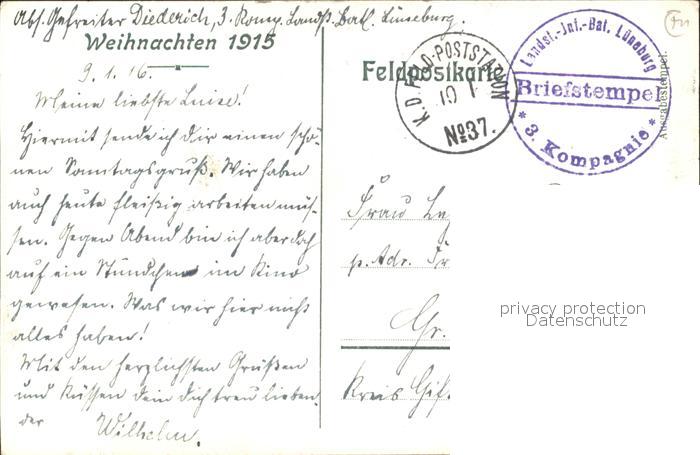 Abs. Gefreiter Diederich, 3. Komp. Landst. Batl. Lüneburg.
Weihnachten 1915
9.1.16.
Meine liebste Luise!
Hiermit sende ich Dir einen schö-
nen Sonntagsgruß. Wir haben
auch heute fleißig arbeiten müs-
sen. Gegen Abend bin ich aber doch
auf ein Stündchen im Kino
gewesen. Was wir hier nicht
alles haben!
Mit den herzlichsten Grüßen
und Küssen dein dich treu lieben-
der Wilhelm.
Feldpostkarte
K.D. FELD-POSTSTATION
10 1
No 37.
Landst.-Inf.-Bat. Lüneburg
Briefstempel
* 3. Kompagnie *
Ausgabestempel.
Frau
p. Adr.
Gr.
Kreis Gif
privacy protection
Datenschutz